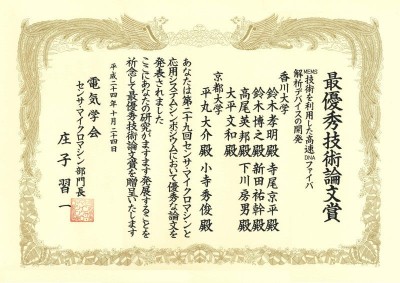 最優秀技術論文賞
MEMS技術を利用した高速DNAファイバ
解析デバイスの開発
香川大学
鈴木孝明殿 寺尾京平殿
鈴木博之殿 新田祐幹殿
高尾英邦殿 下川房男殿
大平文和殿
京都大学
平丸大介殿 小寺秀俊殿
あなたは第二十九回センサ・マイクロマシンと
応用システムシンポジウムにおいて優秀な論文を
発表されました
ここにあなたの研究がますます発展することを
祈念して最優秀技術論文賞を贈呈いたします
平成二十四年十月二十四日
電気学会
センサ・マイクロマシン部門長
庄子習一